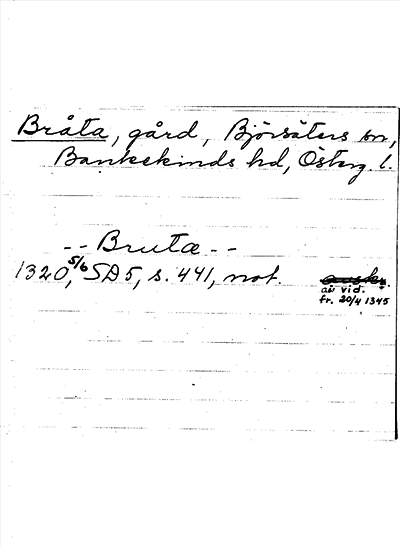 Bråta, gård, Björsäters sn,
Bankekinds hd, Österg. l.
-- Bruta --
1320 5/6, SD 5, s. 441, not. avskr.
av vid.
fr. 20/4 1345